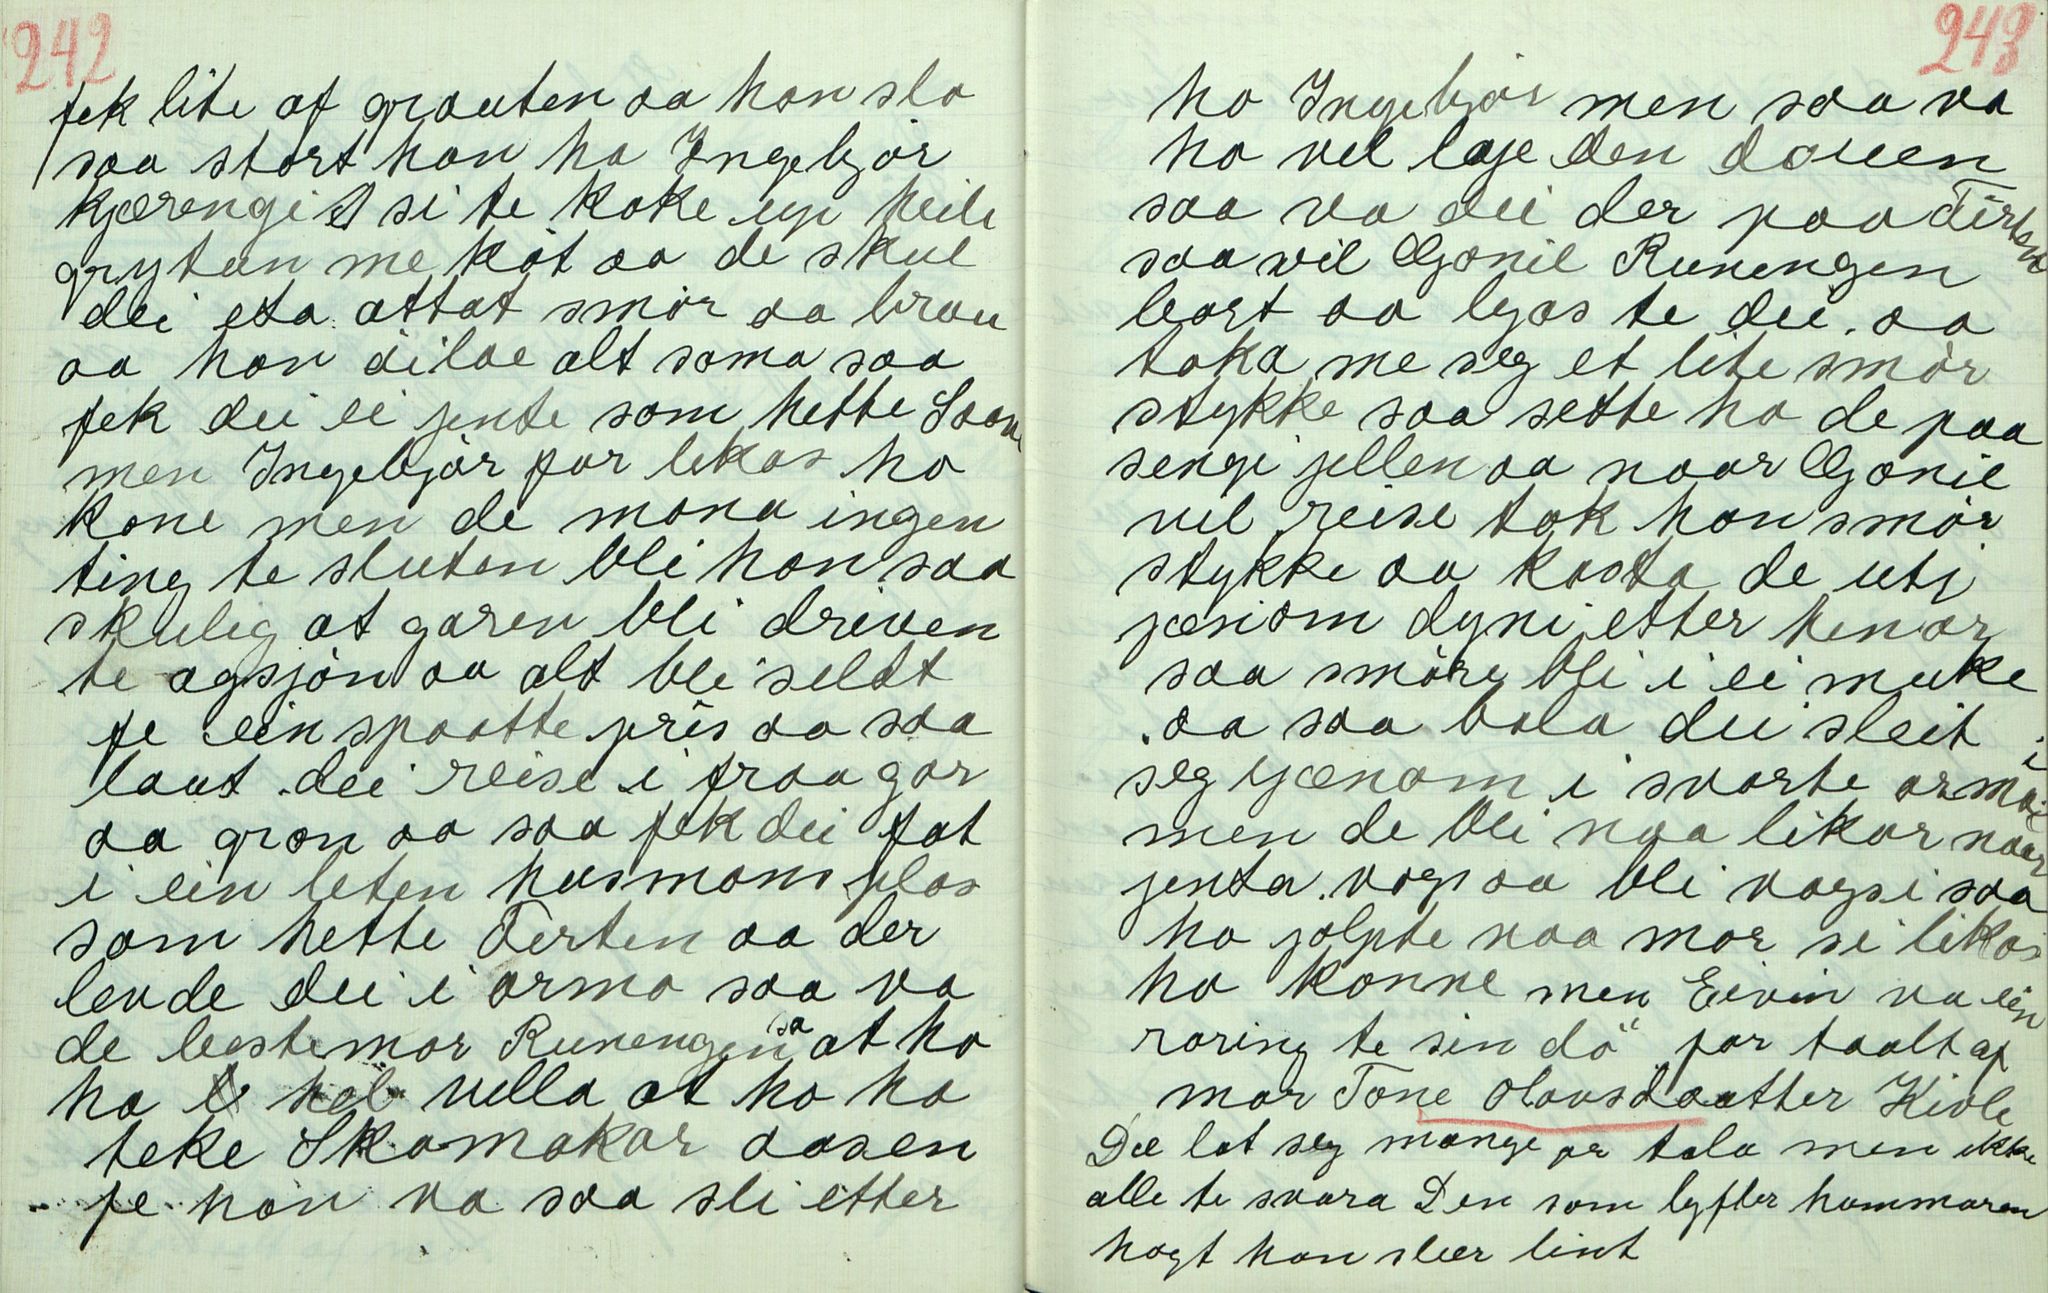 242
fek lite af grauten aa han slo
saa stort han ha Ingebjør
kjærengi si te koke up heile
grytun me køt aa de skul
dei eta attat smør aa brau
aa han øilae alt sama saa
fek dei ei jente som hette
men Ingebjør for likas ho
kone men de mona ingen
ting te sluten bli han saa
skulig at garen bli driven
te agsjon aa alt bli seldt
fe ein spaatte pris aa saa
laut dei reise i fraa gar
aa gron aa saa fek dei fat
i ein leten husmans plas
som hette Tirten aa der
levde dei i armo saa va
de bestemor Runengen sa at ho
ha hel vella at ho ha
teke Skomakar aasen
fe han va saa sli etter
243
ho Ingebjør men saa va
ho vel laje den douen
saa va dei der paa Tirten
saa vil Gonil Runengen
bort aa lyas te dei. aa
toka me seg et lite smør
stykke saa sette ho de paa
sengi jellen aa naar Gonil
vel reise tok han smør
stykke aa kasta de uti
jæniom dyni etter henar
saa smøre bli i ei muke
aa saa bala dei sleit
seg gjænom i svarte armoi
men de bli naa likar naar
jenta vogs aa bli vogsi saa
ho jolpte naa mor si likas
ho konne men Eivin va ein
raring te sin dø" for taalt af
mor Tone Olavsdaatter Kivle
Die lat seg mange or tala men ikke
alle te svara Den som lyfter hammaren
høgt han slær lint